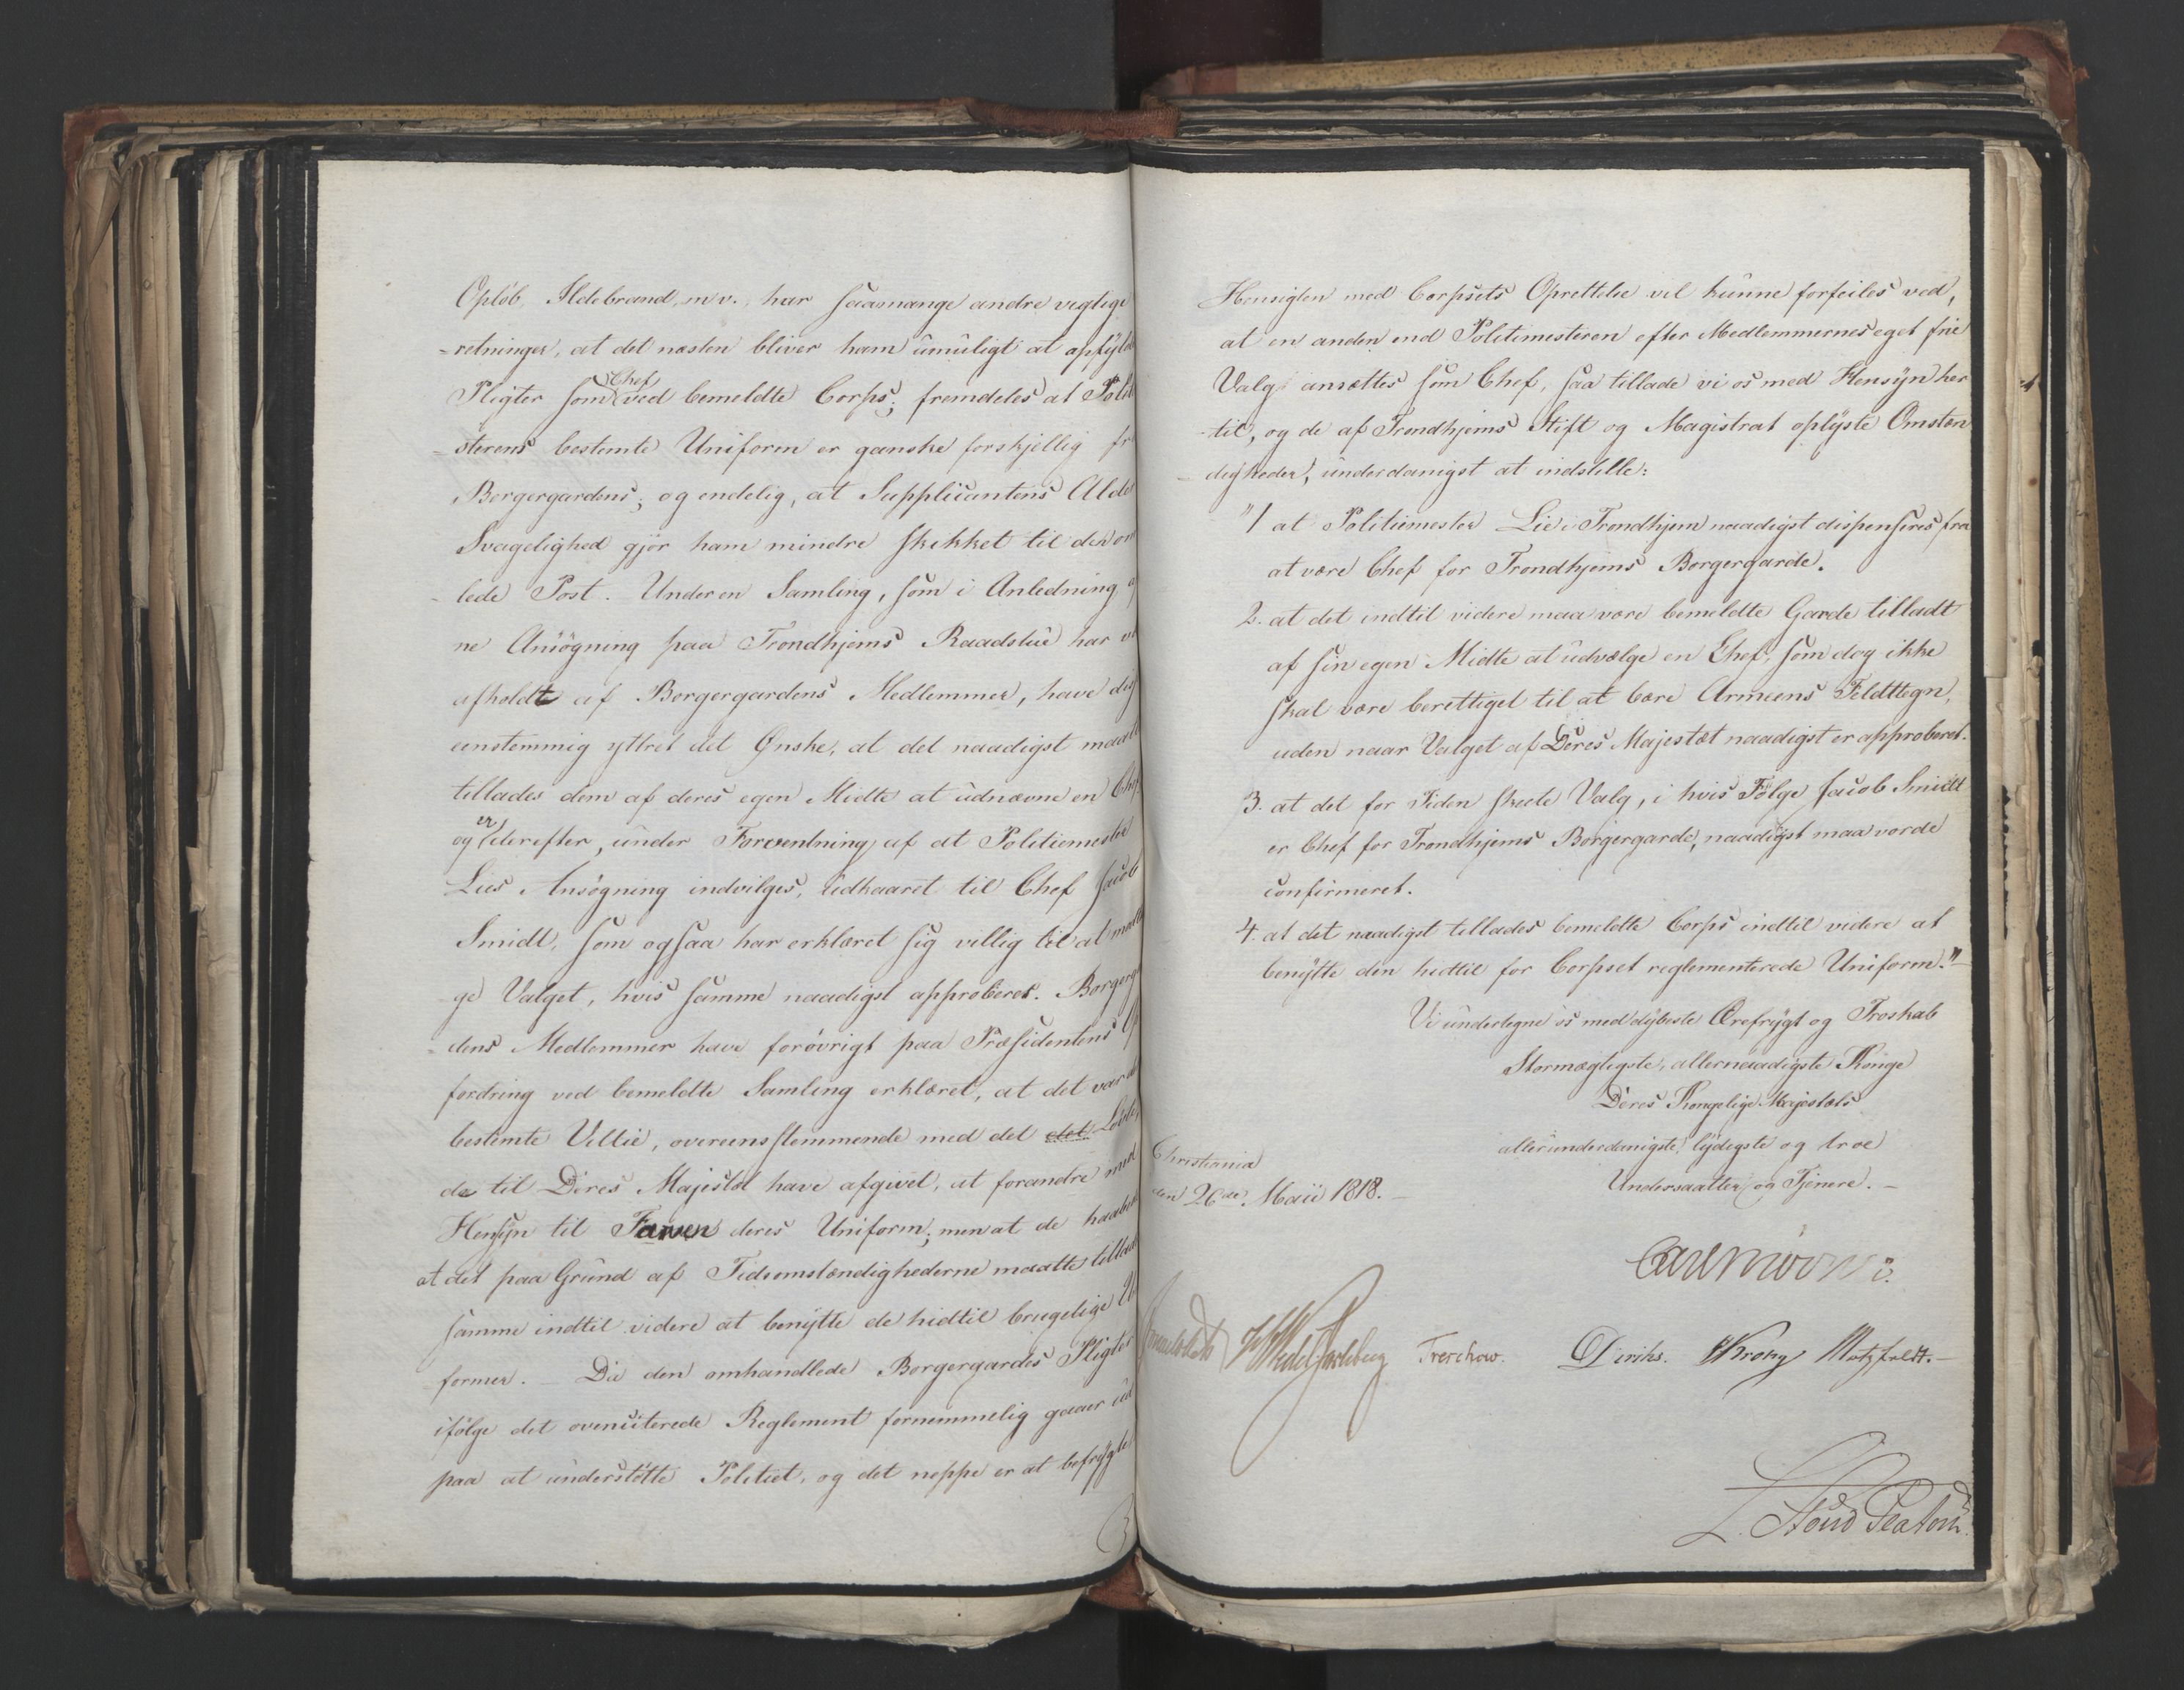 Opløb, Ildebrand, m. v., har saamange andre vigtige
-retninger, at det næsten bliver ham umuligt at opfylde
Pligter som Chef ved bemeldte Corps; fremdeles at Politi
-sterens bestemte Uniform er ganske forskjellig fr
Borgergardens; og endelig, at Supplicantens Alder
Svagelighed gjør ham mindre skikket til den om
-lede Post. Under en Samling, som i Anledning a
ne Ansøgning paa Trondhjems Raadstue har v
afholdt af Borgergardens Medlemmer, have dis
eenstemmig yttret det Ønske, at det naadigst maatte
tillades dem af deres egen Midte at udnævne en Chef,
og er derefter, under Forventning af at Politiemester
Lies Ansøgning indvilges, udkaaret til Chef Jacob
Smidt, som ogsaa har erklæret sig villig til at modta
ge Valget, hvis samme naadigst approberes. Borgerga
-dens Medlemmer have forøvrigt paa Præsidentens Op
fordring ved bemeldte Samling erklæret, at det var de
bestemte Villie, overeensstemmende med det det Løvte,
de til Deres Majestæt have afgivet, at forandre med
Hensyn til Farven deres Uniform; men at de haabe
at det paa Grund af Tidsomstændighederne maatte tillad
samme indtil videre at benytte de hidtil brugelige Uni
former. – Da den omhandlede Borgergardes Pligter
ifølge det ovenciterede Reglement fornemmelig gaaer ud
paa at understøtte Politiet, og det neppe er at befrygte
Hensigten med Corpsets Oprettelse vil kunne forfeiles ved,
at en anden end Politimesteren efter Medlemmernes eget frie
Valg ansættes som Chef, saa tillade vi os med Hensyn her
-til, og de af Trondhjems Stift og Magistrat oplyste Omstæn
-digheder, underdanigst at indstille:
"1 at Politiemester Lie i Trondhjem naadigst dispenseres fra
at være Chef for Trondhjems Borgergarde.
2. at det indtil videre maa være bemeldte Garde tilladt
af sin egen Midte at udvælge en Chef, som dog ikke
skal være berettiget til at bære Armeens Feldttegn,
uden naar Valget af Deres Majestæt naadigst er approberet.
3. at det for Tiden skeete Valg, i hvis Følge Jacob Smidt
er Chef for Trondhjems Borgergarde, naadigst maa vorde
confirmeret.
4. at det naadigst tillades bemeldte Corps indtil videre at
benytte den hidtil for Corpset reglementerede Uniform."
Vi undertegne os med dybeste Ærefrygt og Troskab
Stormægtigste, allernaadigste Konge
Deres Kongelige Majestæts
allerunderdanigste, lydigste og troe
Undersaatter og Tjenere. –
Christiania
den 26de Maii 1818. –
Carl Mörner.
Sommerhielm HWedel Jarlsberg Treschow. Diriks. Krog Motzfeldt. –
L. Stoud Platou